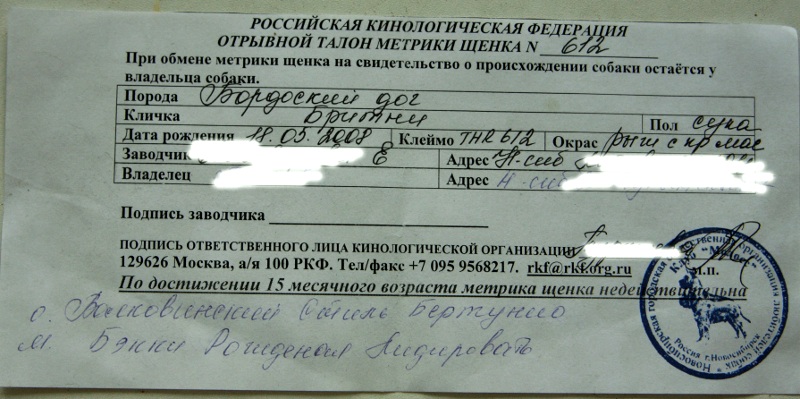 РОССИЙСКАЯ КИНОЛОГИЧЕСКАЯ ФЕДЕРАЦИЯ
ОТРЫВНОЙ ТАЛОН МЕТРИКИ ЩЕНКА N 612
При обмене метрики щенка на свидетельство о происхождении собаки остаётся у
владельца собаки.
Порода Бордоский дог
Кличка Бритни Пол сука
Дата рождения 18.05.2008 Клеймо THR 612 Окрас рыж с кр мас
Заводчик Е Адрес Н-сиб
Владелец Адрес Н-сиб
Подпись заводчика
ПОДПИСЬ ОТВЕТСТВЕННОГО ЛИЦА КИНОЛОГИЧЕСКОЙ ОРГАНИЗАЦИИ
129626 Москва, а/я 100 РКФ. Тел/факс +7 095 9568217. rkf@rkf.org.ru М.П.
По достижении 15 месячного возраста метрика щенка недействительна
о. Валковинский Стиль Бертучио
м. Бэкки Рожденая Лидировать
Новосибирская городская общественная организация любителей собак
Клуб
Россия г.Новосибирск